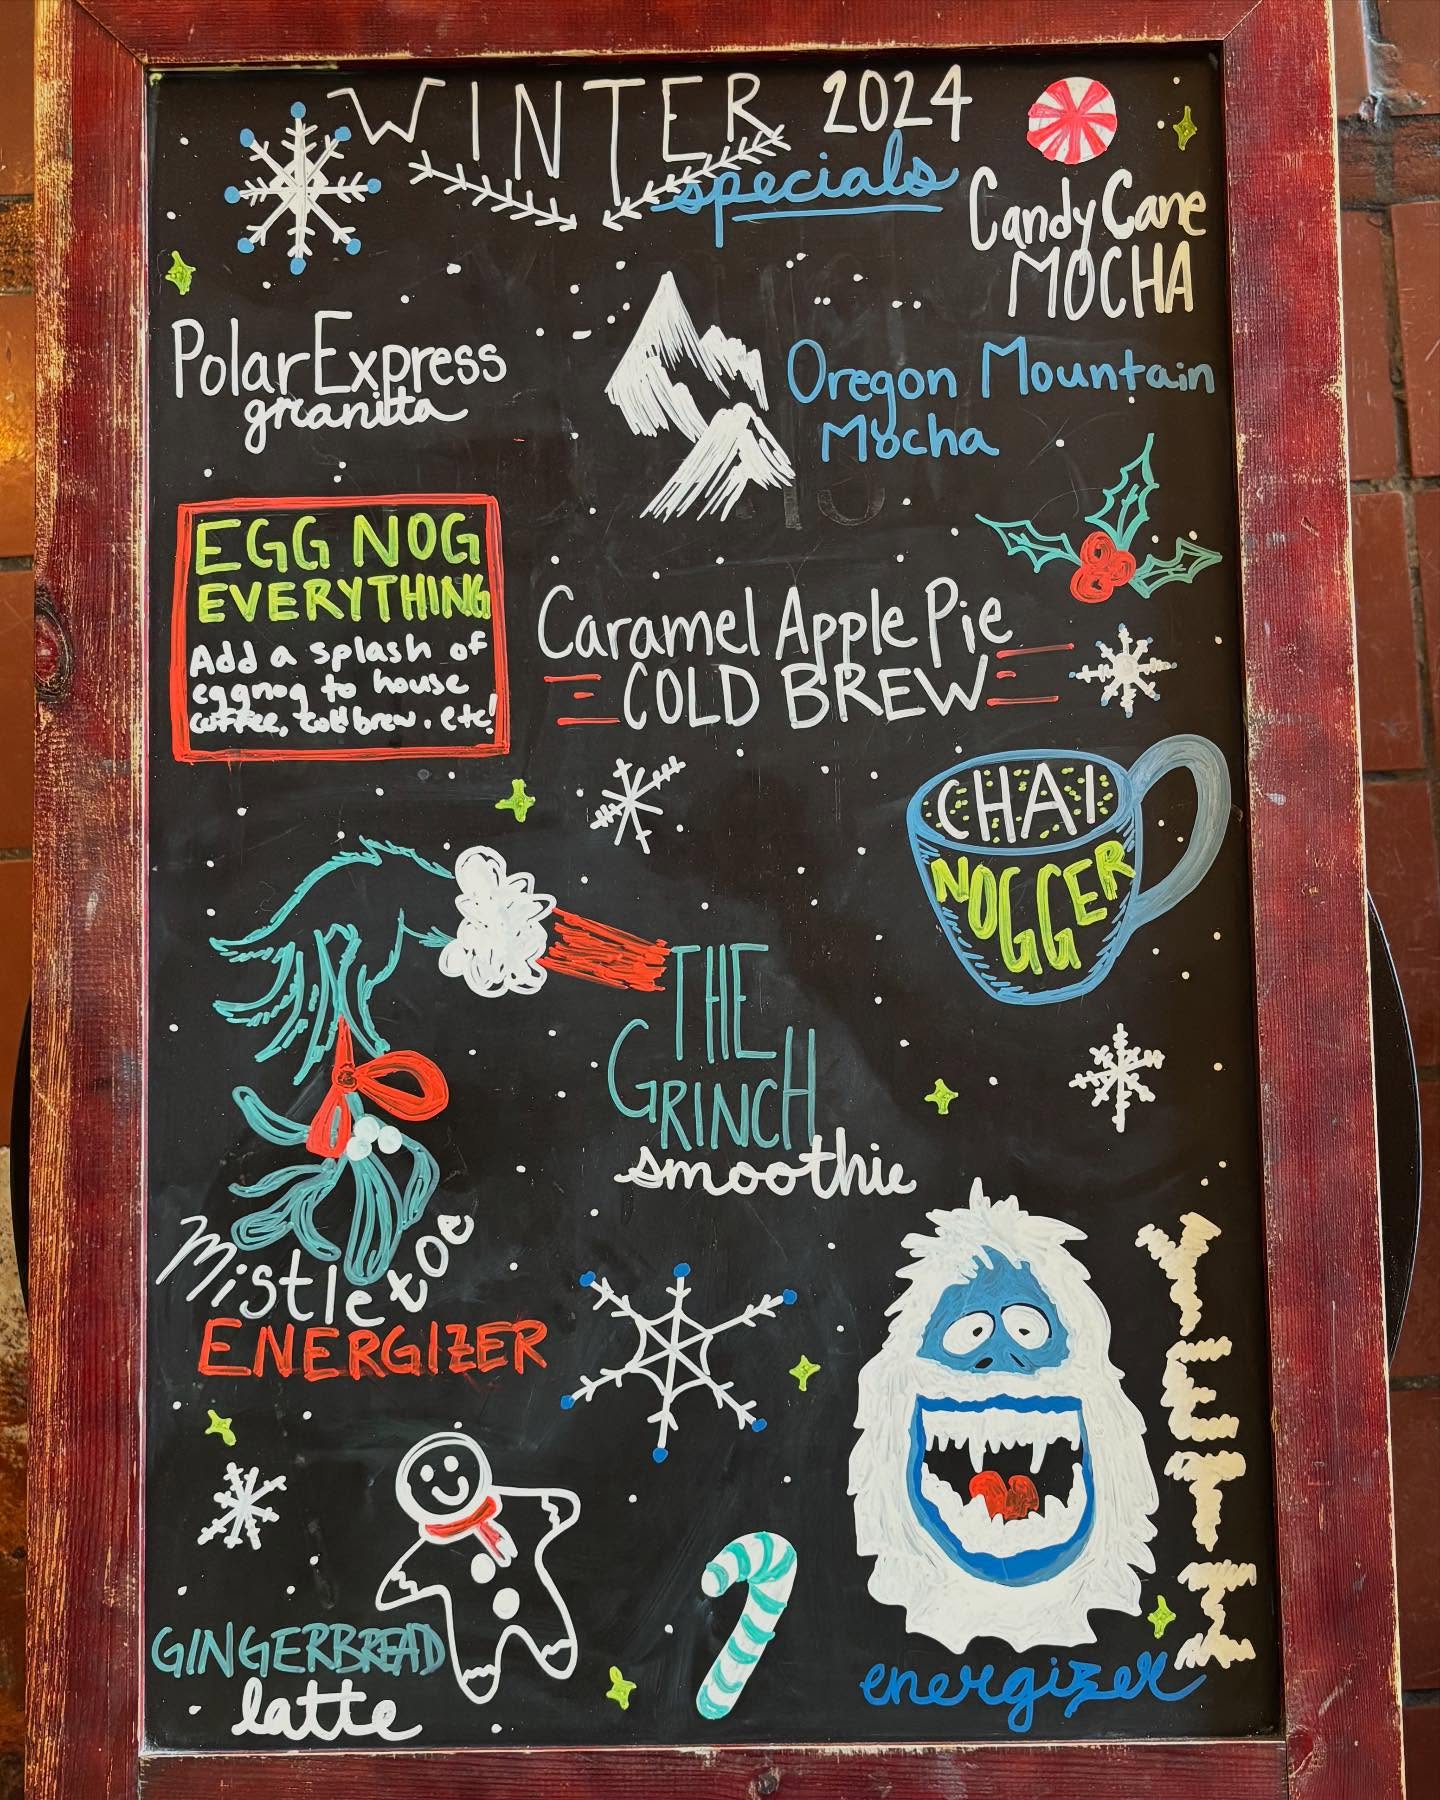 WINTER 2024
specials
Candy Cane
MOCHA
Polar Express
granita
Oregon Mountain
Mocha
EGG NOG
EVERYTHING
Add a splash of
eggnog to house
coffee, cold brew, etc!
Caramel Apple Pie
COLD BREW
CHAI
NOGGER
THE
GRINCH
smoothie
Mistletoe
ENERGIZER
YETI
energizer
GINGERBREAD
latte